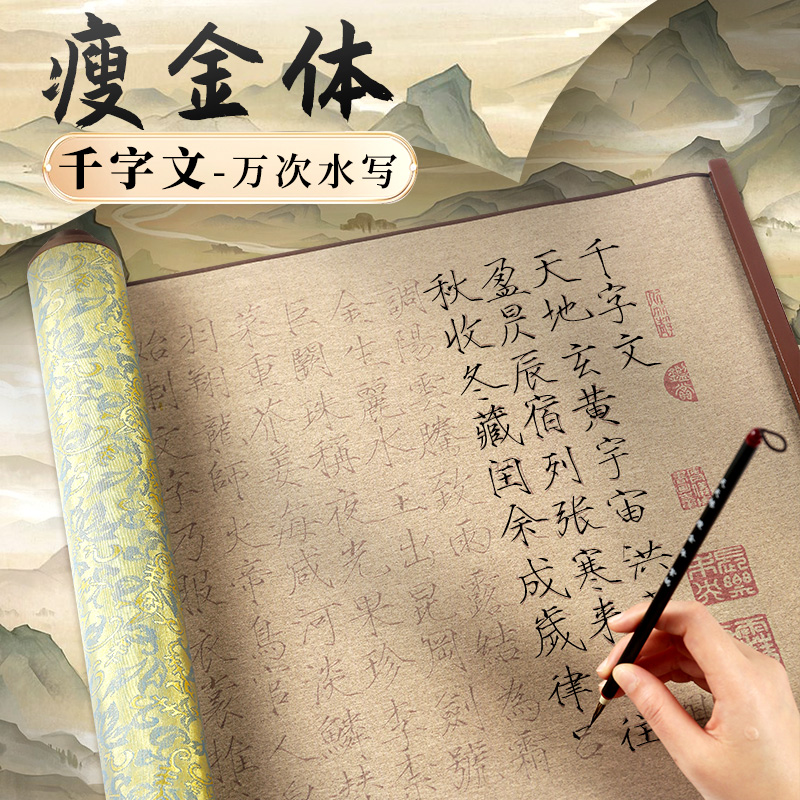 瘦金体
千字文-万次水写
千字文
天地玄黄宇宙洪
盈昃辰宿列张寒来往
秋收冬藏闰余成歲律
調陽雲騰致雨露結為霜
金生麗水玉出昆岡劍號
巨闕珠稱夜光果珍李柰
菜重芥姜海咸河淡鱗
羽翔龍師火帝鳥官人
始制文字乃服衣裳推